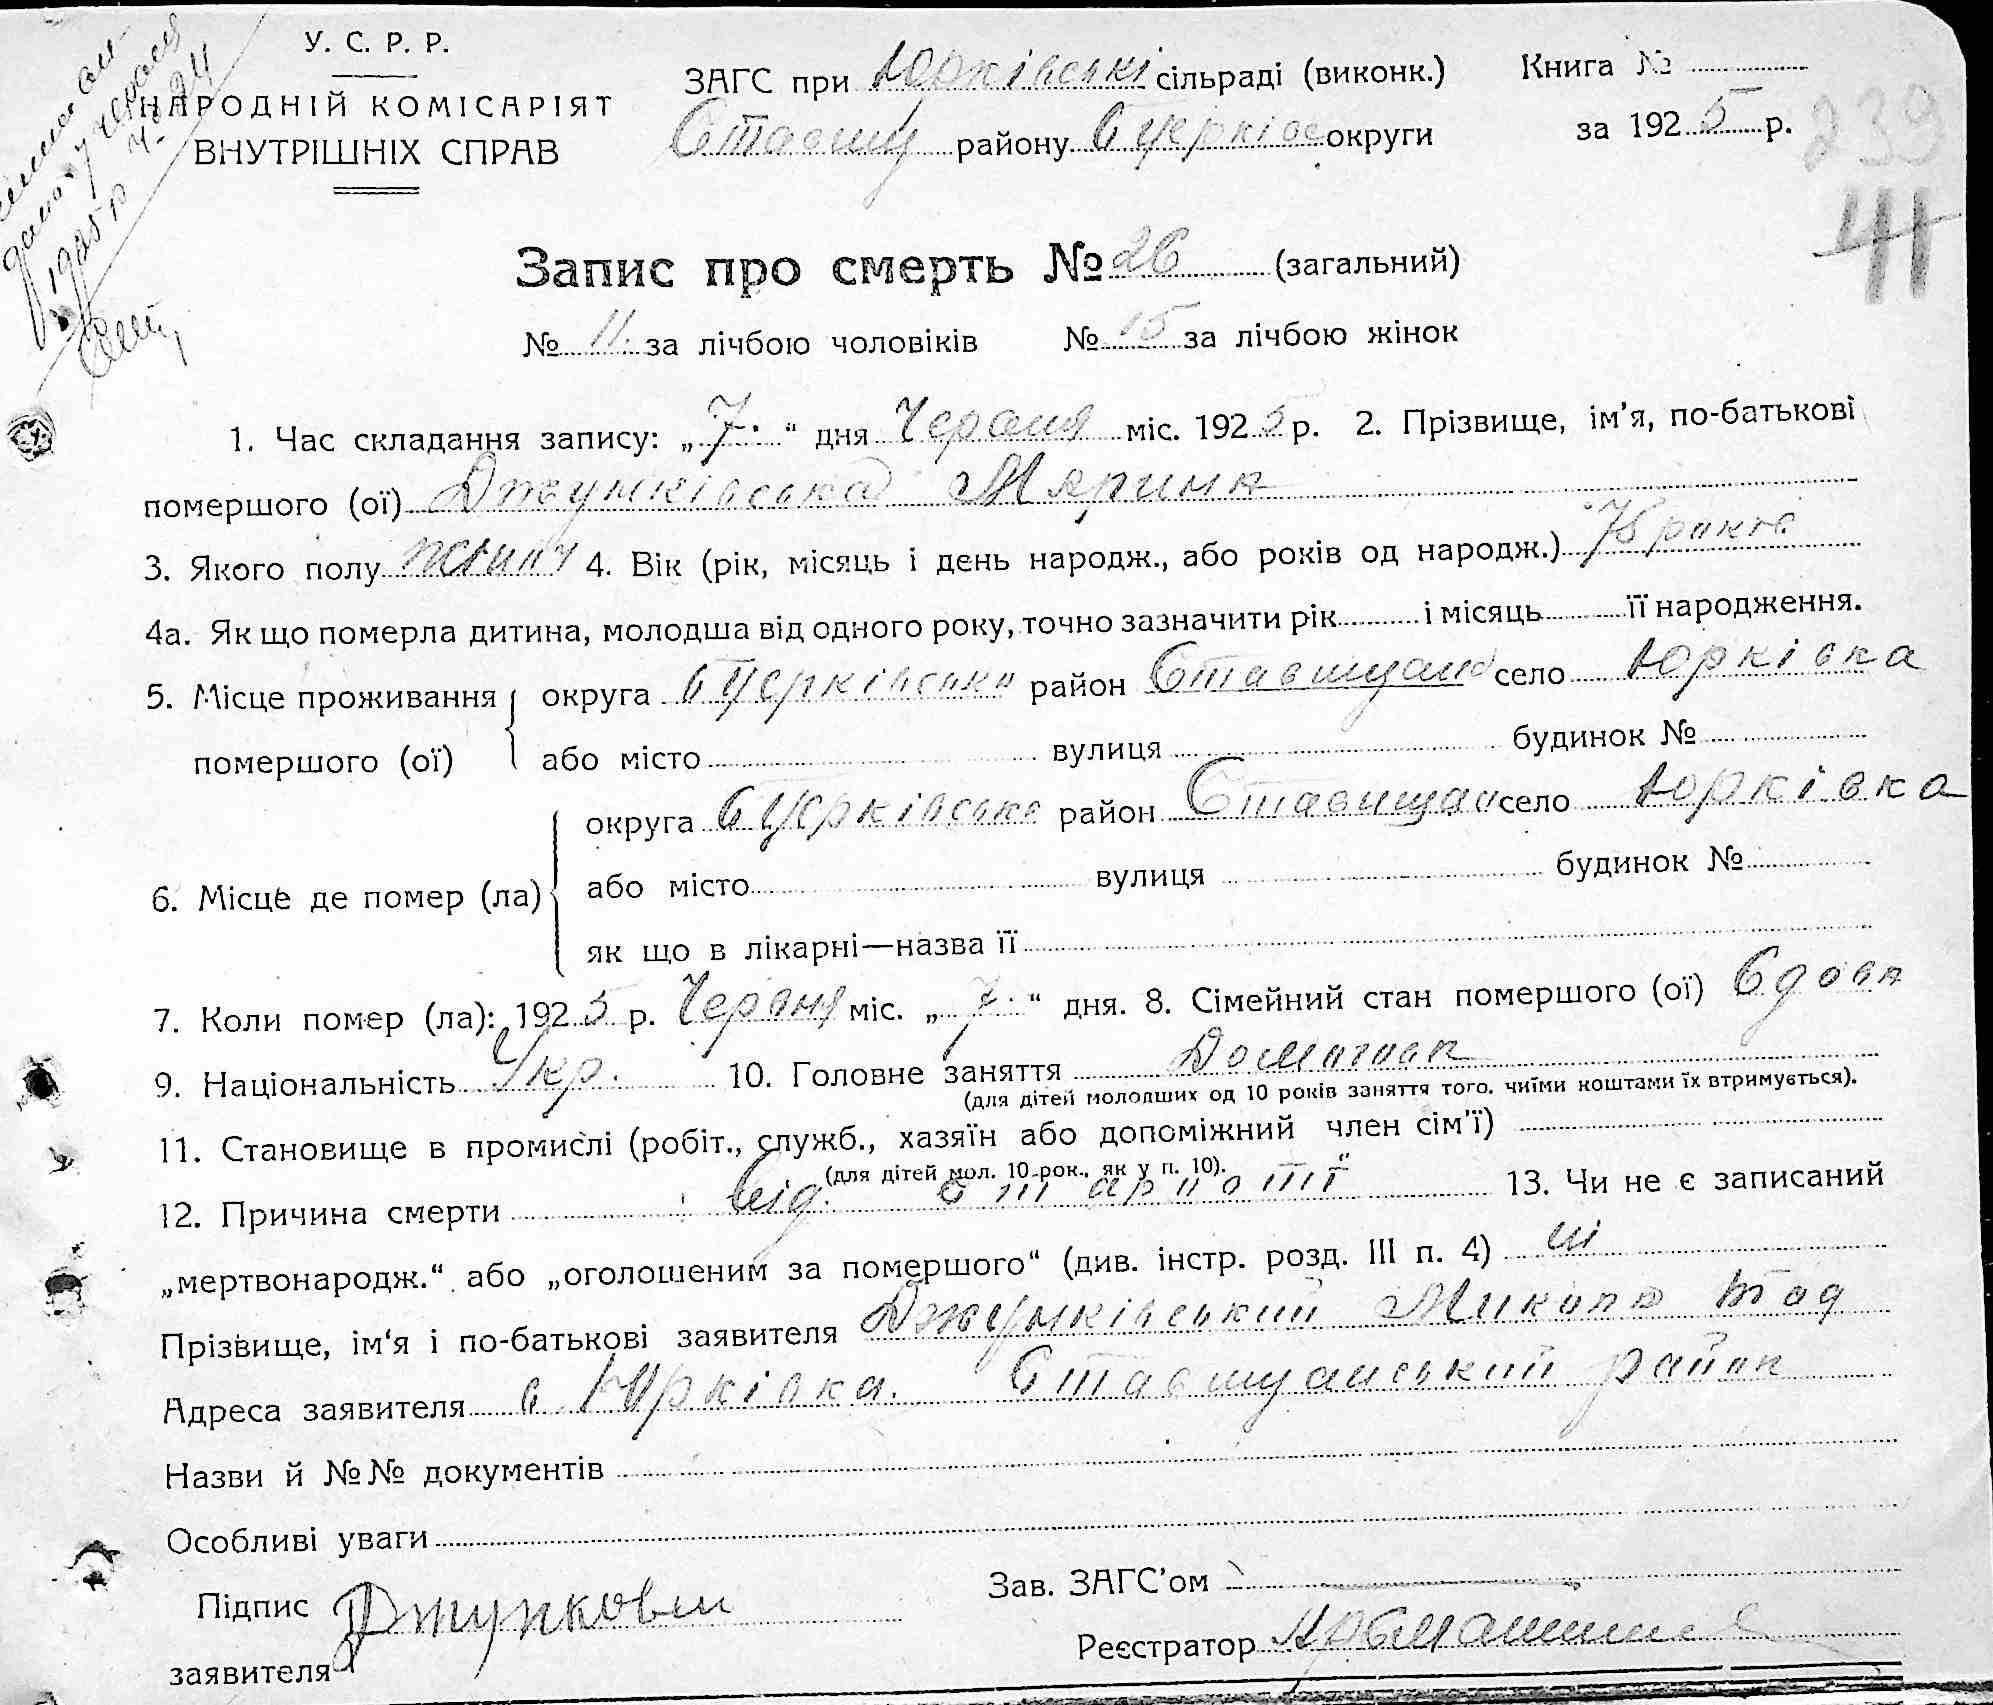 У. С. Р. Р.
НАРОДНІЙ КОМІСАРІЯТ
ВНУТРІШНІХ СПРАВ
ЗАГС при Юрківські сільраді (виконк.)
Ставищ району Бцерківс округи
Книга №
за 1925 р.
239
41
1925 р
Запис про смерть № 26 (загальний)
№ 11. за лічбою чоловіків № 15 за лічбою жінок
1. Час складання запису: „7.“ дня Червня міс. 1925 р. 2. Прізвище, ім'я, по-батькові
помершого (ої) Джунківська Марина
3. Якого полу жіноч 4. Вік (рік, місяць і день народж., або років од народж.) 75 років
4а. Як що померла дитина, молодша від одного року, точно зазначити рік і місяць її народження.
5. Місце проживання помершого (ої) округа Бцерківська район Ставищан село Юрківка
або місто вулиця будинок №
6. Місце де помер (ла) округа Бцерківська район Ставищан село Юрківка
або місто вулиця будинок №
як що в лікарні—назва її
7. Коли помер (ла): 1925 р. Червня міс. „7.“ дня. 8. Сімейний стан помершого (ої) вдова
9. Національність Укр. 10. Головне заняття Домогосп
(для дітей молодших од 10 років заняття того, чиїми коштами їх втримується).
11. Становище в промислі (робіт., служб., хазяїн або допоміжний член сім'ї)
(для дітей мол. 10 рок., як у п. 10).
12. Причина смерти від старости 13. Чи не є записаний
„мертвонародж.“ або „оголошеним за помершого“ (див. інстр. розд. III п. 4) ні
Прізвище, ім'я і по-батькові заявителя Джунківський Микола Тод
Адреса заявителя с Юрківка. Ставищанський район
Назви й №№ документів
Особливі уваги
Підпис заявителя Джунковсь
Зав. ЗАГС'ом
Реєстратор